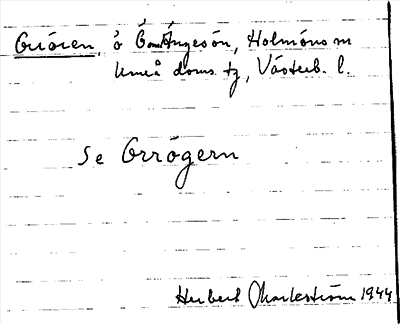 ö Ö om Ängesön, Holmöns sn
Umeå doms. tg, Västerb. l.
Se Orrögern
Herbert Markström 1944